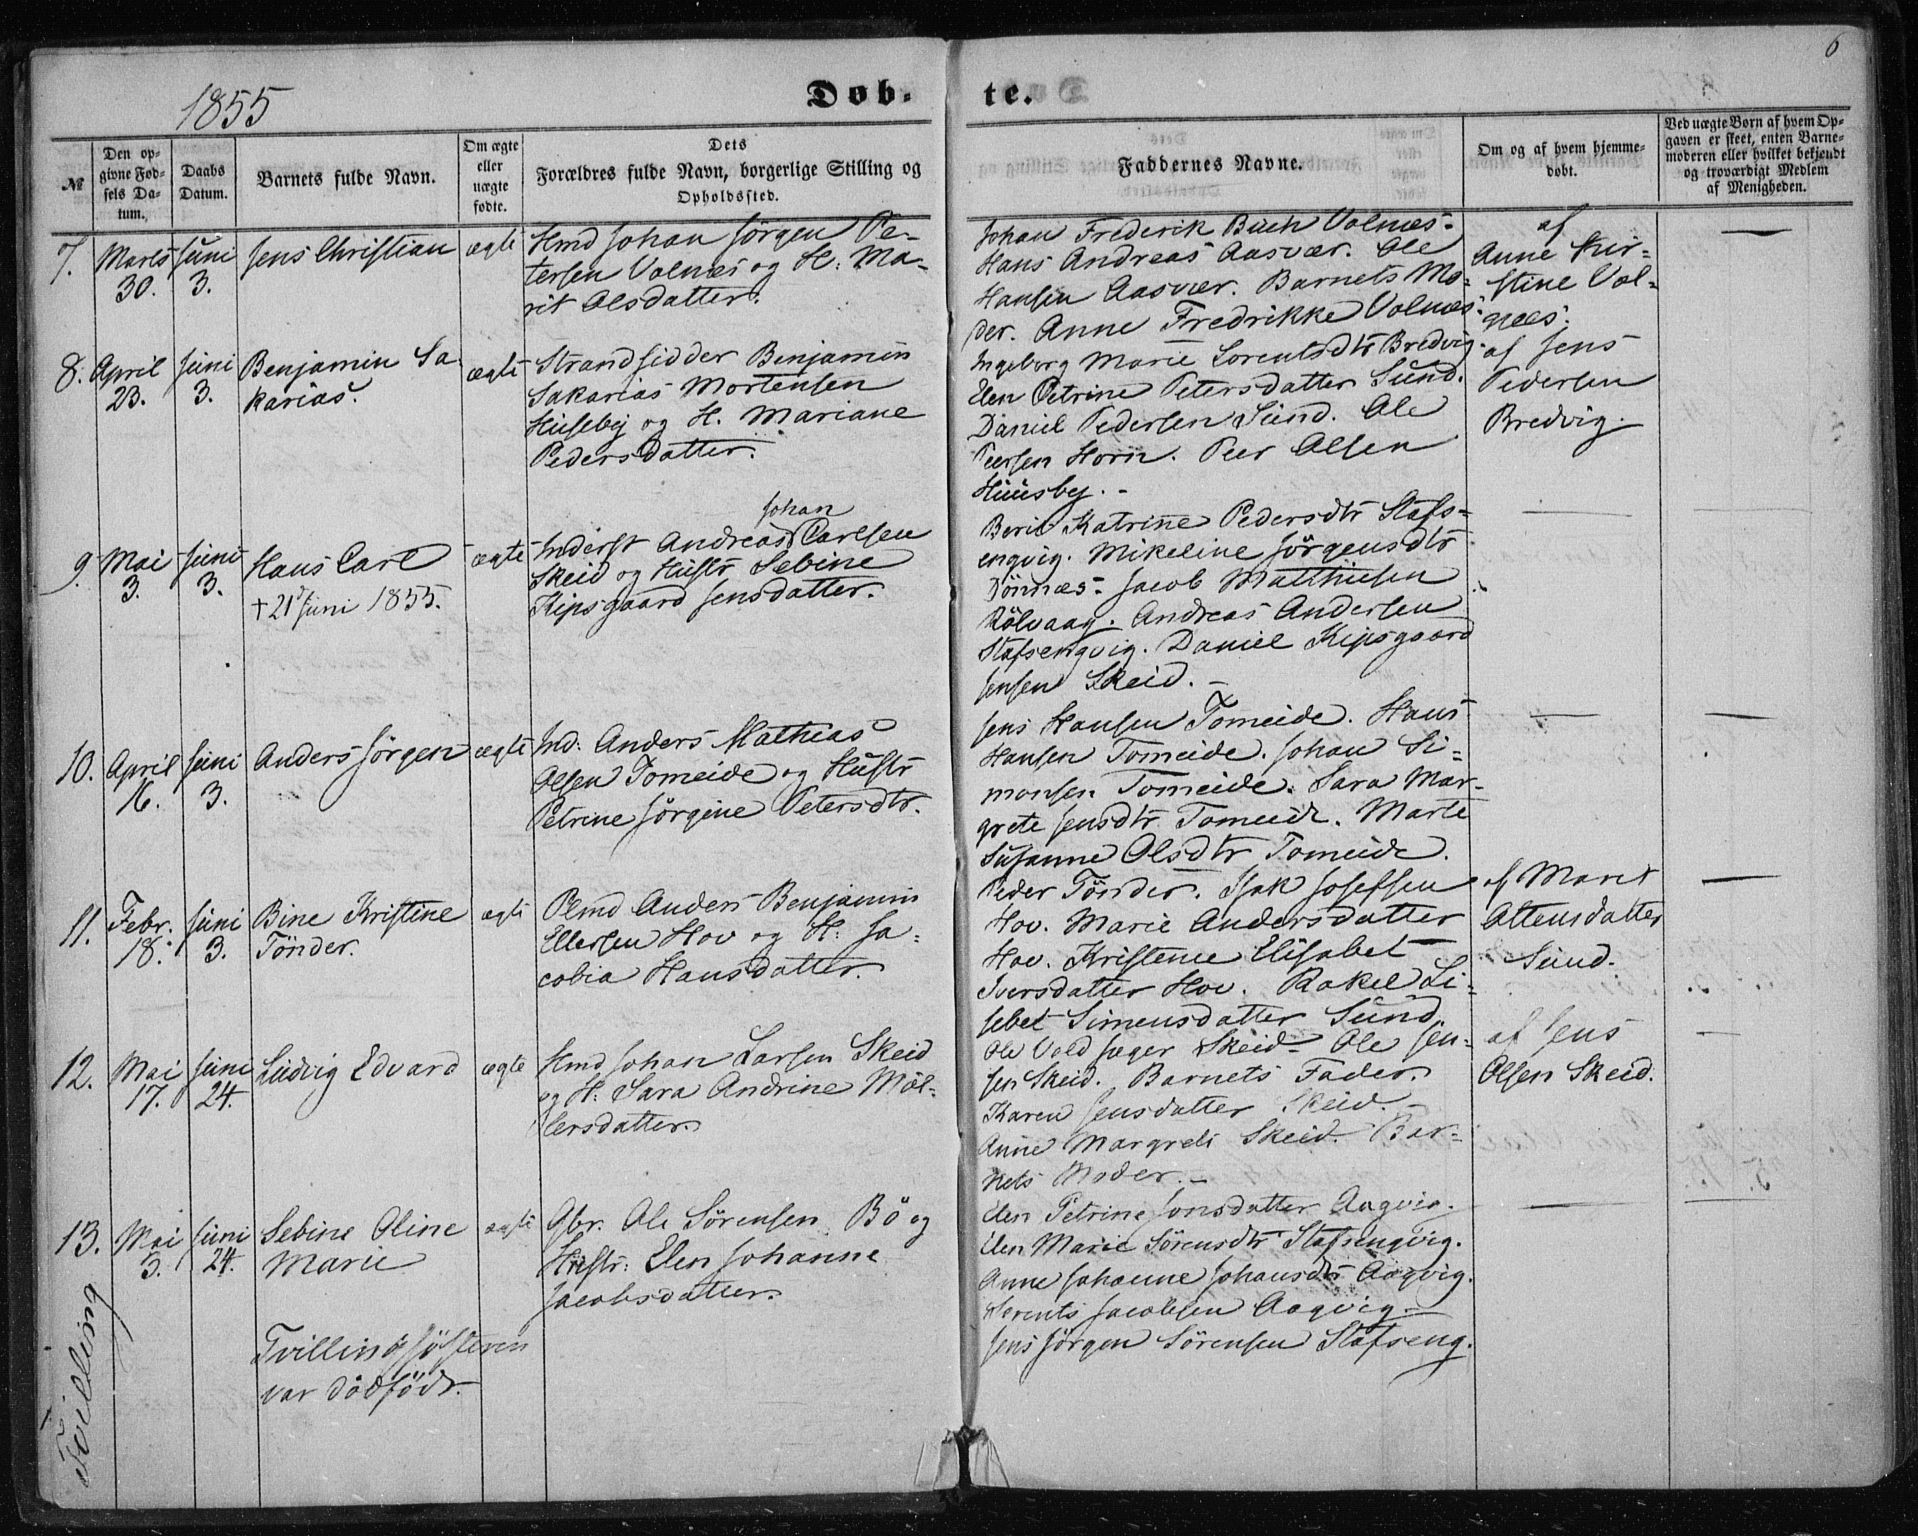 6
1855
Døb-
te.
№
Den op-
givne Fød-
sels Da-
tum.
Daabs
Datum.
Barnets fulde Navn.
Om ægte
eller
uægte
fødte.
Dets
Forældres fulde Navn, borgerlige Stilling og
Opholdssted.
Faddernes Navne.
Om og af hvem hjemme-
døbt.
Ved uægte Børn af hvem Op-
gaven er skeet, enten Barne-
moderen eller hvilket bekjendt
og troværdigt Medlem
af Menigheden.
7.
Marts
30.
Juni
3.
Jens Christian
ægte
Hmd Johan Jørgen Pe-
tersen Valnæs og H: Ma-
rit Olsdatter.
Johan Frederik Buch Valnæs.
Hans Andreas Aasvær. Ole
Hansen Aasvær. Barnets Mo-
der. Anne Fredrikke Valnæs.
af
Anne Kir-
stine Val-
næs.
8.
April
23.
Juni
3.
Benjamin Sa-
karias.
ægte
Strandsidder Benjamin
Sakarias Mortensen
Huseby og H. Mariane
Pedersdatter.
Ingeborg Marie Lorentsdtr Bredvig.
Elen Petrine Petersdatter Sund.
Daniel Pedersen Sund. Ole
Peersen Horn. Peer Olsen
Huusby.
af Jens
Pedersen
Bredvig.
9.
Mai
3.
Juni
3.
Hans Carl
† 21 Juni 1855.
ægte
Johan
Inderst Andreas Carlsen
Skeid og Hustr Sebine
Kipsgaard Jensdatter.
Berit Katrine Pedersdtr Stafs-
engvig. Mikeline Jørgensdtr
Dønnæs. Jacob Matthiesen
Rølvaag. Andreas Andersen
Stafsengvig. Daniel Kipsgaard
Jensen Skeid.
10.
April
16.
Juni
3.
Anders Jørgen
ægte
Ind: Anders Mathias
Olsen Tomeide og Hustr
Petrine Jørgine Petersdtr.
Jens Hansen Tomeide. Hans
Hansen Tomeide. Johan Si-
monsen Tomeide. Sara Mar-
grete Jensdtr Tomeide. Marte
Susanne Olsdtr Tomeide.
11.
Febr.
18.
Juni
3.
Bine Kristine
Tønder.
ægte
Plmd Anders Benjamin
Ellersen Hov og H: Ja-
cobia Hansdatter.
Peder Tønder. Isak Josefsen
Hov. Marie Andersdatter
Hov. Kristense Elisabet
Iversdatter Hov. Rakel Li-
sebet Simensdatter Sund.
af Maret
Attensdatter
Sund.
12.
Mai
17.
Juni
24.
Ludvig Edvard
ægte
Hmd Johan Larsen Skeid
og H: Sara Andrine Møl-
lersdatter.
Ole Voldsæger Skeid. Ole Jen-
sen Skeid. Barnets Fader.
Karen Jensdatter Skeid.
Anne Margrete Skeid. Bar-
nets Moder.
af Jens
Olsen Skeid.
13.
Tvilling
Mai
3.
Juni
24.
Sebine Oline
Marie
Tvillingsøsteren
var dødfødt.
ægte
Gbr. Ole Sørensen Bø og
Hustr: Elen Johanne
Jacobsdatter.
Elen Petrine Jonsdatter Aagvig.
Elen Marie Sørensdtr Stafsengvig.
Anne Johanne Johansdtr Aagvig.
Lorents Jacobsen Aagvig.
Jens Jørgen Sørensen Stafseng.